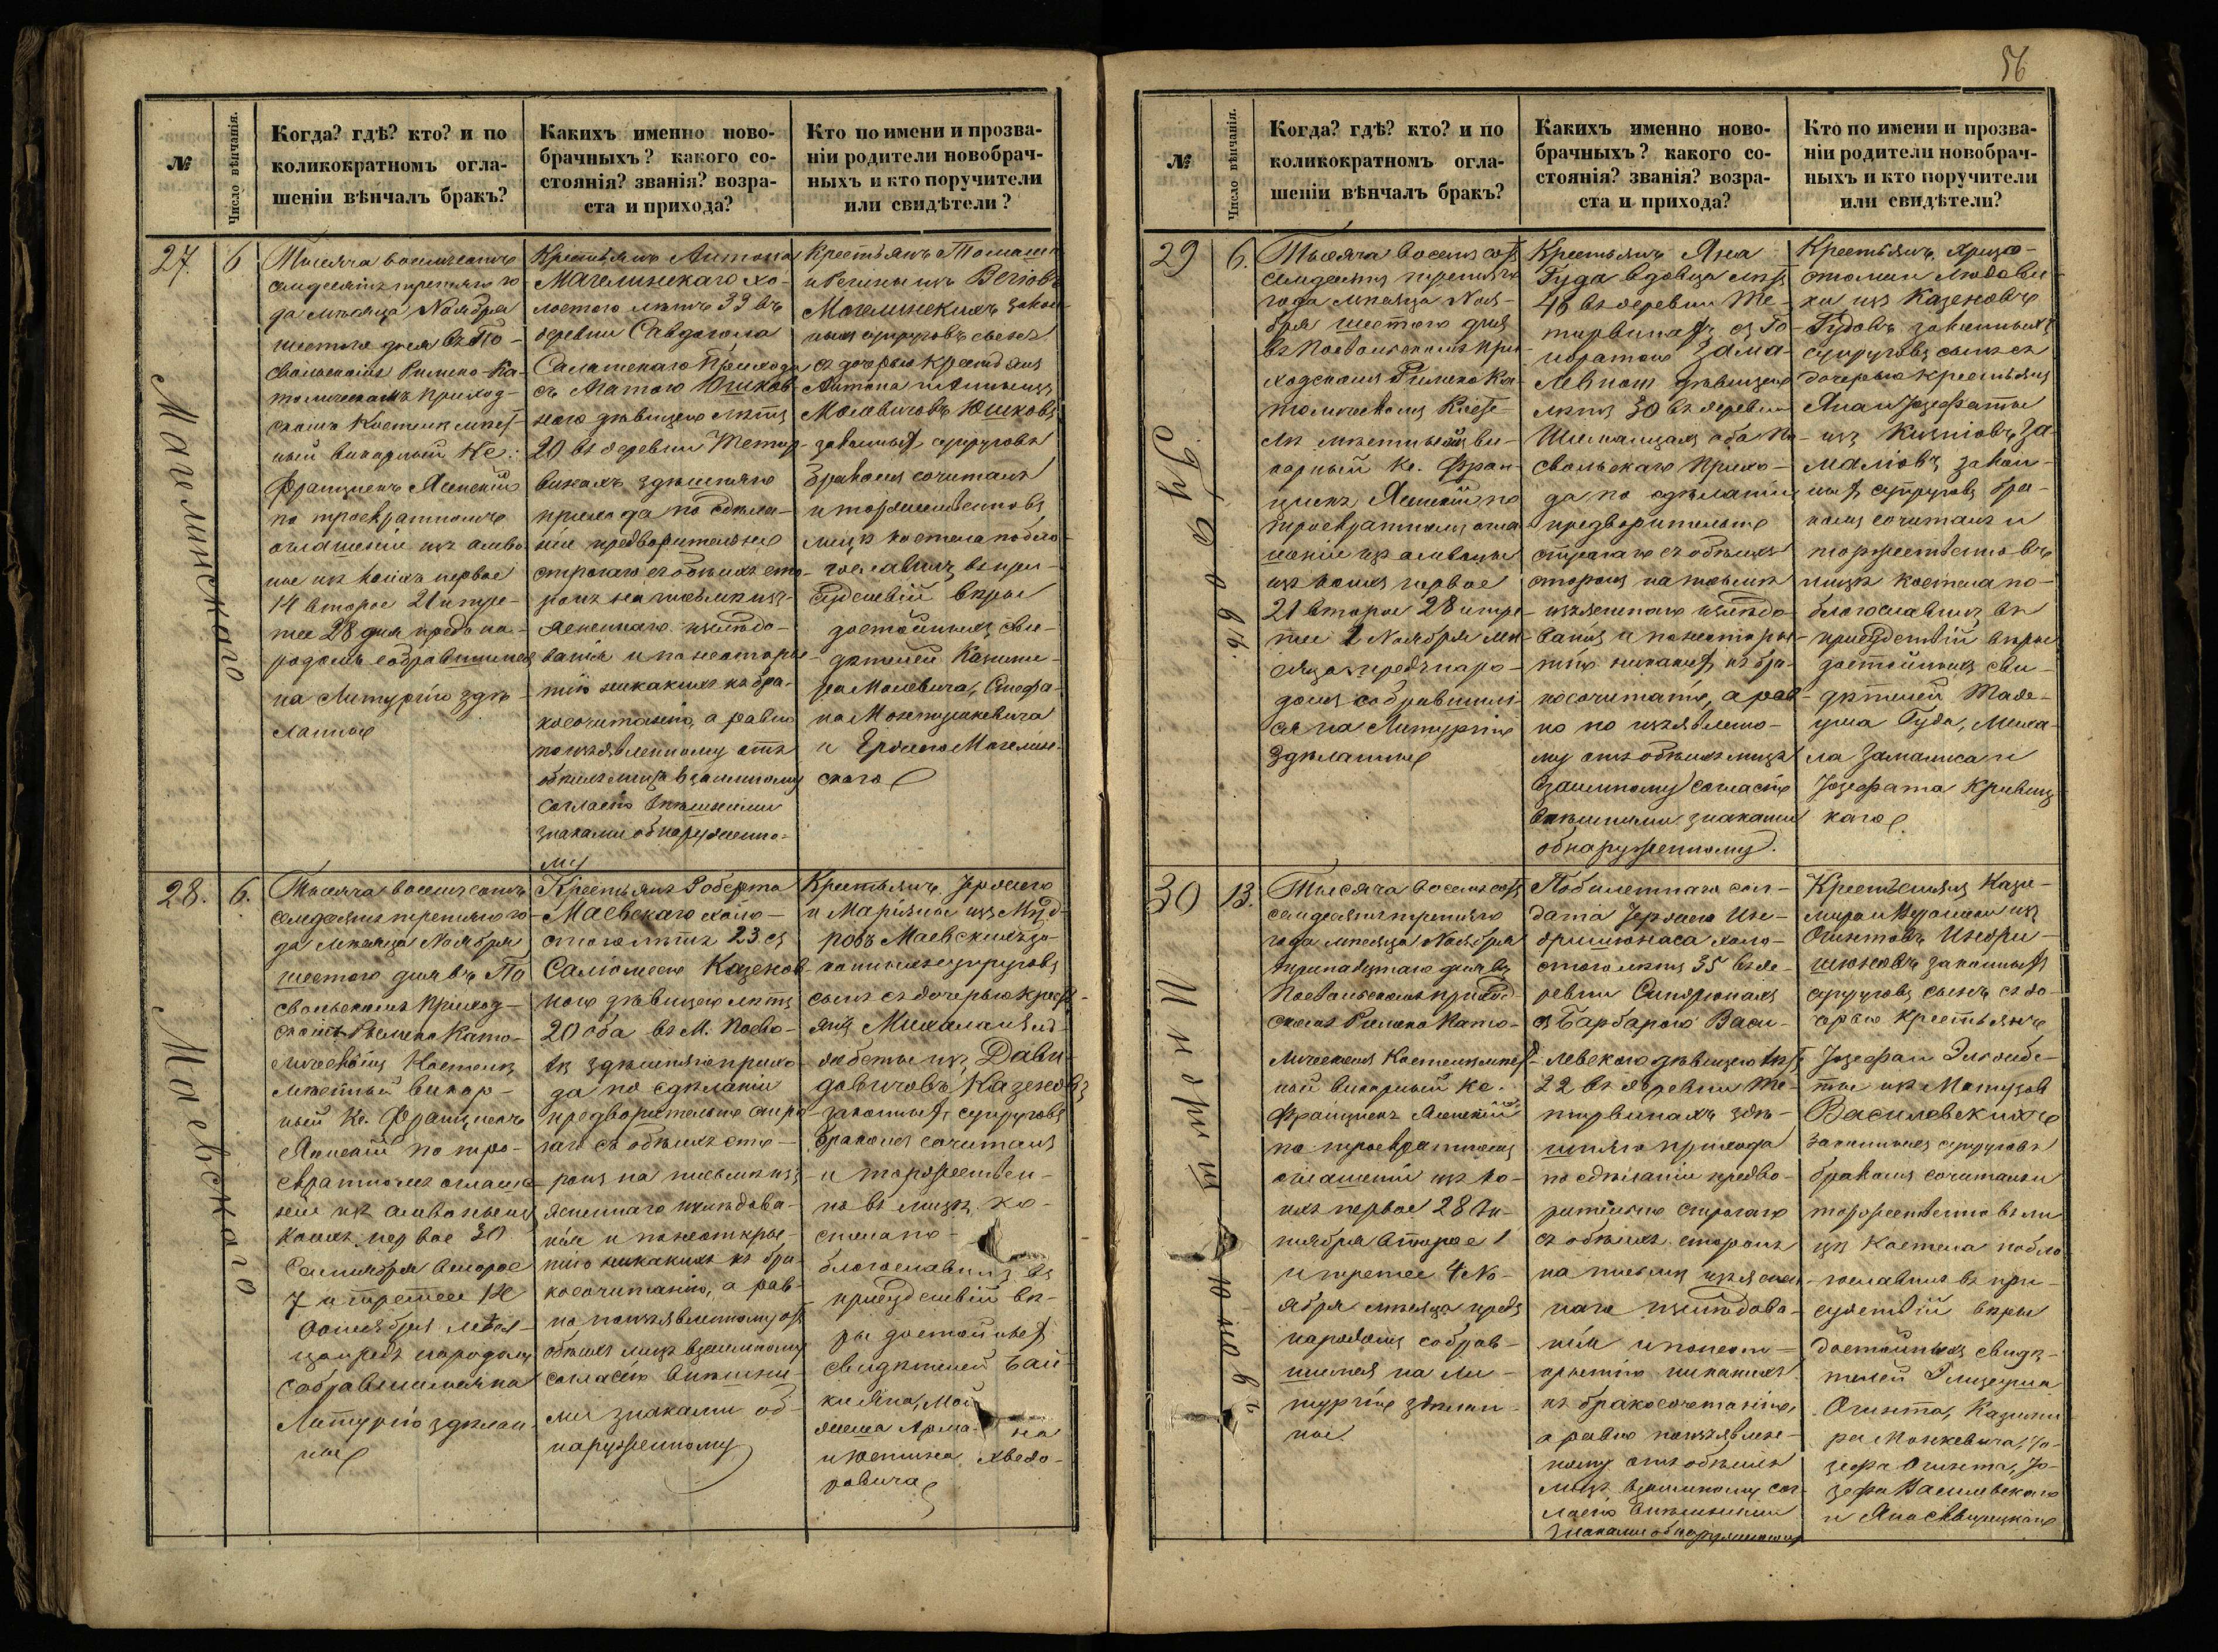 56
№
Число вѣнчанія.
Когда? гдѣ? кто? и по
коликократномъ огла-
шеніи вѣнчалъ бракъ?
Какихъ именно ново-
брачныхъ? какого со-
стоянія? званія? возра-
ста и прихода?
Кто по имени и прозва-
ніи родители новобрач-
ныхъ и кто поручители
или свидѣтели?
27
6
Тысяча восемьсотъ
семдесятъ третьяго го-
да мѣсяца Ноября
шестого дня въ По-
свольскомъ Римско-Ка-
толическомъ приход-
скомъ Костелѣ мѣст-
ный викарный Кс.
Францискъ Ясенскій
по троекратномъ
оглашеніи изъ амво-
ны изъ коихъ первое
14 второе 21 и тре-
тее 28 дня предъ на-
родомъ собравшимся
на Литургію здѣ-
ланные
Крестьянъ Антона
Магелинскаго хо-
лостого лѣтъ 33 въ
деревни
Салатскаго прихода
съ Агатою Юшков-
ною дѣвицею лѣтъ
20 въ деревни Тетер-
винахъ здѣшняго
прихода по сдѣла-
ніи предворительно
строгаго съ обѣихъ сто-
ронъ на письмѣ изъ-
ясненнаго изслѣдо-
ванія и по неоткры-
тію никакихъ къ бра-
косочитанію, а равно
по изъявленному отъ
обѣихъ лицъ взаимному
согласію внѣшними
знаками обнаруженно-
му
Крестьянъ Томаша
и
Магелинскихъ закон-
ныхъ супруговъ сынъ
съ дочерью крестьянъ
Антона и
Юшковъ
законныхъ супруговъ
бракомъ сочиталъ
и торжественно въ
лицѣ костела побло-
гославилъ въ при-
судствіи вѣры
достойныхъ сви-
дѣтелей Казими-
ра Мацевича, Стефа-
на
и Магелин-
скаго
Магелинскаго
28.
6.
Тысяча восемьсотъ
семдесятъ третьяго го-
да мѣсяца Ноября
шестого дня въ По-
свольскомъ приход-
скомъ Римско Като-
лическомъ Костелѣ
мѣстный викар-
ный Кс. Францискъ
Ясенскій по тро-
екратномъ оглаше-
ніи изъ амвоны изъ
коихъ первое 30
Сентября второе
7 и третее 14
Октября мѣся-
ца предъ народомъ
собравшимся на
Литургію здѣлан-
ные
Крестьянъ Роберта
Маевскаго холо-
стого лѣтъ 23 съ
Саломеею Казенов-
ною дѣвицею лѣтъ
20 оба въ М. Посво-
лѣ здѣшняго прихо-
да по сдѣланіи
предворительно стро-
гаго съ обѣихъ сто-
ронъ на письмѣ изъ-
ясненнаго изслѣдова-
нія и по неоткры-
тію никакихъ къ бра-
косочитанію, а рав-
но по изъявленному отъ
обѣихъ лицъ взаимному
согласію внѣшни-
ми знаками об-
наруженному
Крестьянъ
и Маріяны изъ
Маевскихъ за-
конныхъ супруговъ
сынъ съ дочерью крест-
янъ Михала и Ели-
забеты изъ Дави-
довичовъ Казеновъ
законныхъ супруговъ
бракомъ сочиталъ
и торжествен-
но въ лицѣ ко-
стела по-
благославилъ въ
присудствіи вѣ-
ры достойныхъ
свидѣтелей
Яна,
и Юстина Хведо-
ровича
Маевскаго
29
6.
Тысяча восемьсотъ
семдесятъ третьяго
года мѣсяца Ноя-
бря шестого дня
въ Посвольскомъ при-
ходскомъ Римско Ка-
толическомъ Косте-
лѣ мѣстный ви-
карный Кс. Фран-
цискъ Ясенскій по
троекратномъ огла-
шеніи изъ амвоны
изъ коихъ первое
21 второе 28 и тре-
тее 1 Ноября мѣ-
сяца предъ наро-
домъ собравшим-
ся на Литургію
здѣланные
Крестьянъ Яна
Гуда вдовца лѣтъ
48 въ деревни Те-
тирвинахъ съ Го-
норатою Зама-
левною дѣвицею
лѣтъ 30 въ деревни
оба По-
свольскаго прихо-
да по сдѣланіи
предворительно
строгаго съ обѣихъ
сторонъ на письмѣ
изъясненнаго изслѣдо-
ванія и по неоткры-
тію никакихъ къ бра-
косочитанію, а рав-
но по изъявленно-
му отъ обѣихъ лицъ
взаимному согласію
внѣшними знаками
обнаруженному.
Крестьянъ
и Людови-
ки изъ Казеновъ
Гудовъ законныхъ
супруговъ сынъ съ
дочерью крестьянъ
Яна и Юзефаты
изъ За-
маліовъ закон-
ныхъ супруговъ бра-
комъ сочиталъ и
торжественно въ
лицѣ костела по-
благославилъ въ
присудствіи вѣры
достойныхъ сви-
дѣтелей Таде-
уша Гуда, Миха-
ла и
Юзефата Кривиц-
каго
Гудовъ.
30
13.
Тысяча восемьсотъ
семдесятъ третьяго
года мѣсяца Ноября
тринадцатаго дня въ
Посвольскомъ приход-
скомъ Римско Като-
лическомъ Костелѣ мѣст-
ный викарный Кс.
Францискъ Ясенскій
по троекратномъ
оглашеніи изъ ко-
ихъ первое 28 Ок-
тября второе 1
и третее 4 Но-
ября мѣсяца предъ
народомъ собрав-
шимся на Ли-
тургію здѣлан-
ные
Побилетнаго сол-
дата Ин-
дришонаса холо-
стого лѣтъ 35 въ де-
ревни
съ Барбарою Васи-
левскою дѣвицею лѣтъ
22 въ деревни Те-
тирвинахъ здѣ-
шняго прихода
по сдѣланіи предво-
рительно строгаго
съ обѣихъ сторонъ
на письмѣ изъяснен-
наго изслѣдова-
нія и по неот-
крытію никакихъ
къ бракосочетанію,
а равно по изъявлен-
ному отъ обѣихъ
лицъ взаимному сог-
ласію внѣшними
знаками обнаруженному
Крестьянъ Кази-
мира и изъ
Огинтовъ Индри-
шюновъ законныхъ
супруговъ сынъ съ до-
черью крестьянъ
Юзефа и Эльжбе-
ты изъ
Василевскихъ
законныхъ супруговъ
бракомъ сочиталъ и
торжественно въ ли-
цѣ костела побло-
гославилъ въ при-
судствіи вѣры
достойныхъ свидѣ-
телей
Огинта, Казими-
ра Монкевича, Іо-
зефа Огинта, Іо-
зефа Василевскаго
и Яна